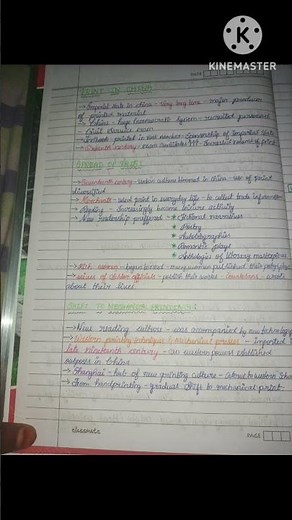 MADE WITH
KINEMASTER
DATE
PRINT IN CHINA
→ Imperial state in China - Very long time - major producer
of printed material
→ China - huge bureaucratic system - recruited personnel
Civil Service exam
→ Textbook - printed in vast number - Sponsorship of Imperial State
→ Sixteenth century - exam candidates ↑↑↑ - increased volume of print
→ Seventeenth century - urban culture bloomed in China - use of print
diversified
→ Merchants - used print in everyday life - to collect trade information
→ Reading - Increasingly became leisure activity
→ New readership preferred → ★ Fictional narratives
★ Poetry
★ Autobiographies
★ Romantic plays
★ Anthologies of literary masterpieces
→ Rich women - began to read - many women published their poetry & plays
→ Wives of scholar officials - publish their works - Courtesans - wrote
about their lives
→ New reading culture - was accompanied by new technology
→ Western printing techniques & Mechanical presses - imported in
late nineteenth century - as western powers established
outposts in China
→ Shanghai - hub of new printing culture - Catering to western schools
→ From handprinting - gradual shift to mechanical print -
classmate
PAGE